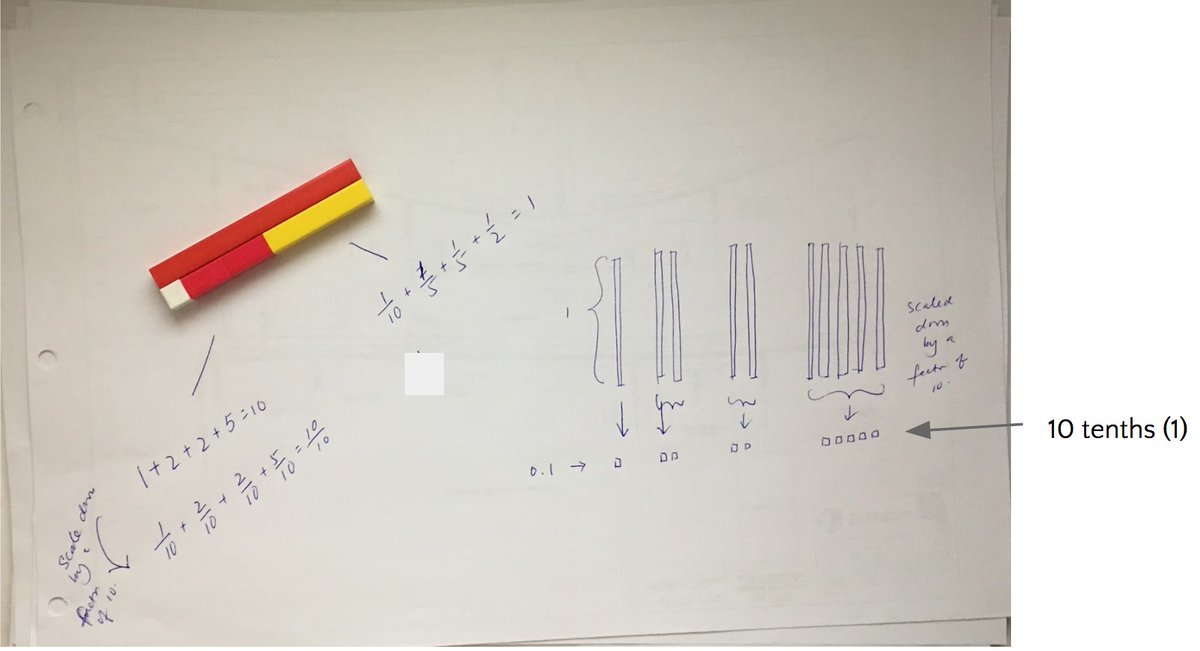 1/10 + 1/5 + 1/5 + 1/2 = 1
1+2+2+5=10
1/10 + 2/10 + 2/10 + 5/10 = 10/10
Scale down
by a
factor
of 10.
1
0.1 →
scaled
down
by a
factor of
10.
10 tenths (1)